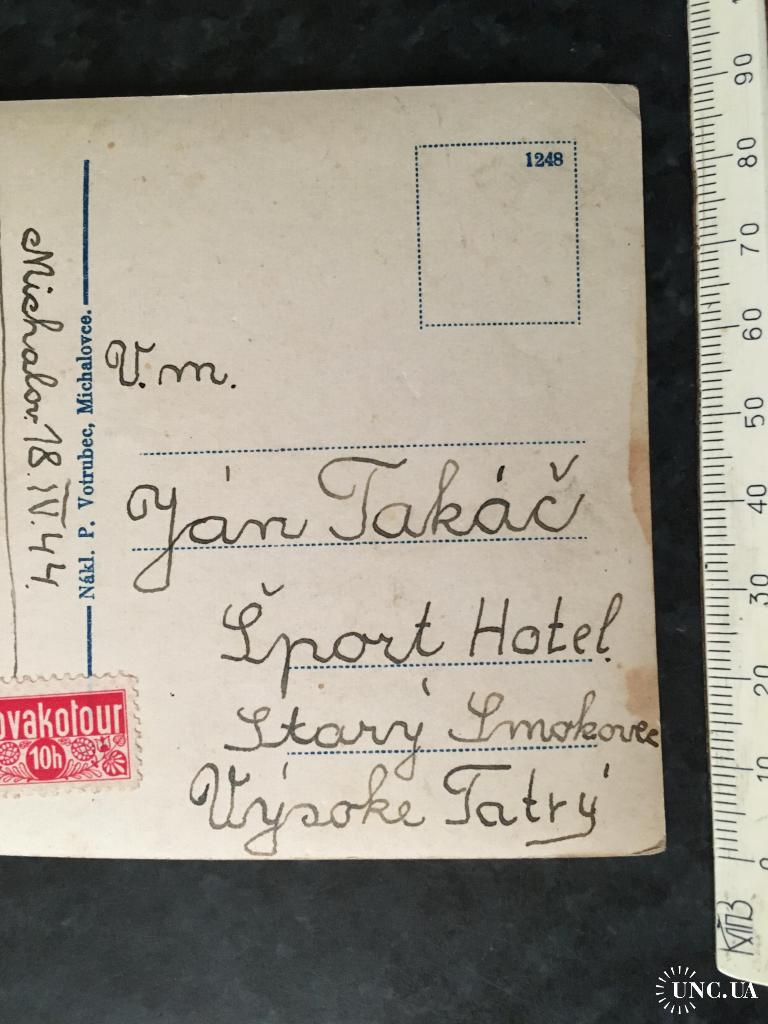 1248
V. m.
Ján Takáč
Šport Hotel
Starý Smokovec
Výsoke Tatrý
Michalov. 18. IV. 44.
Nákl. P. Votrubec, Michalovce.
ovakotour
10h
90
80
70
60
50
40
30
20
10
0
UNC.UA